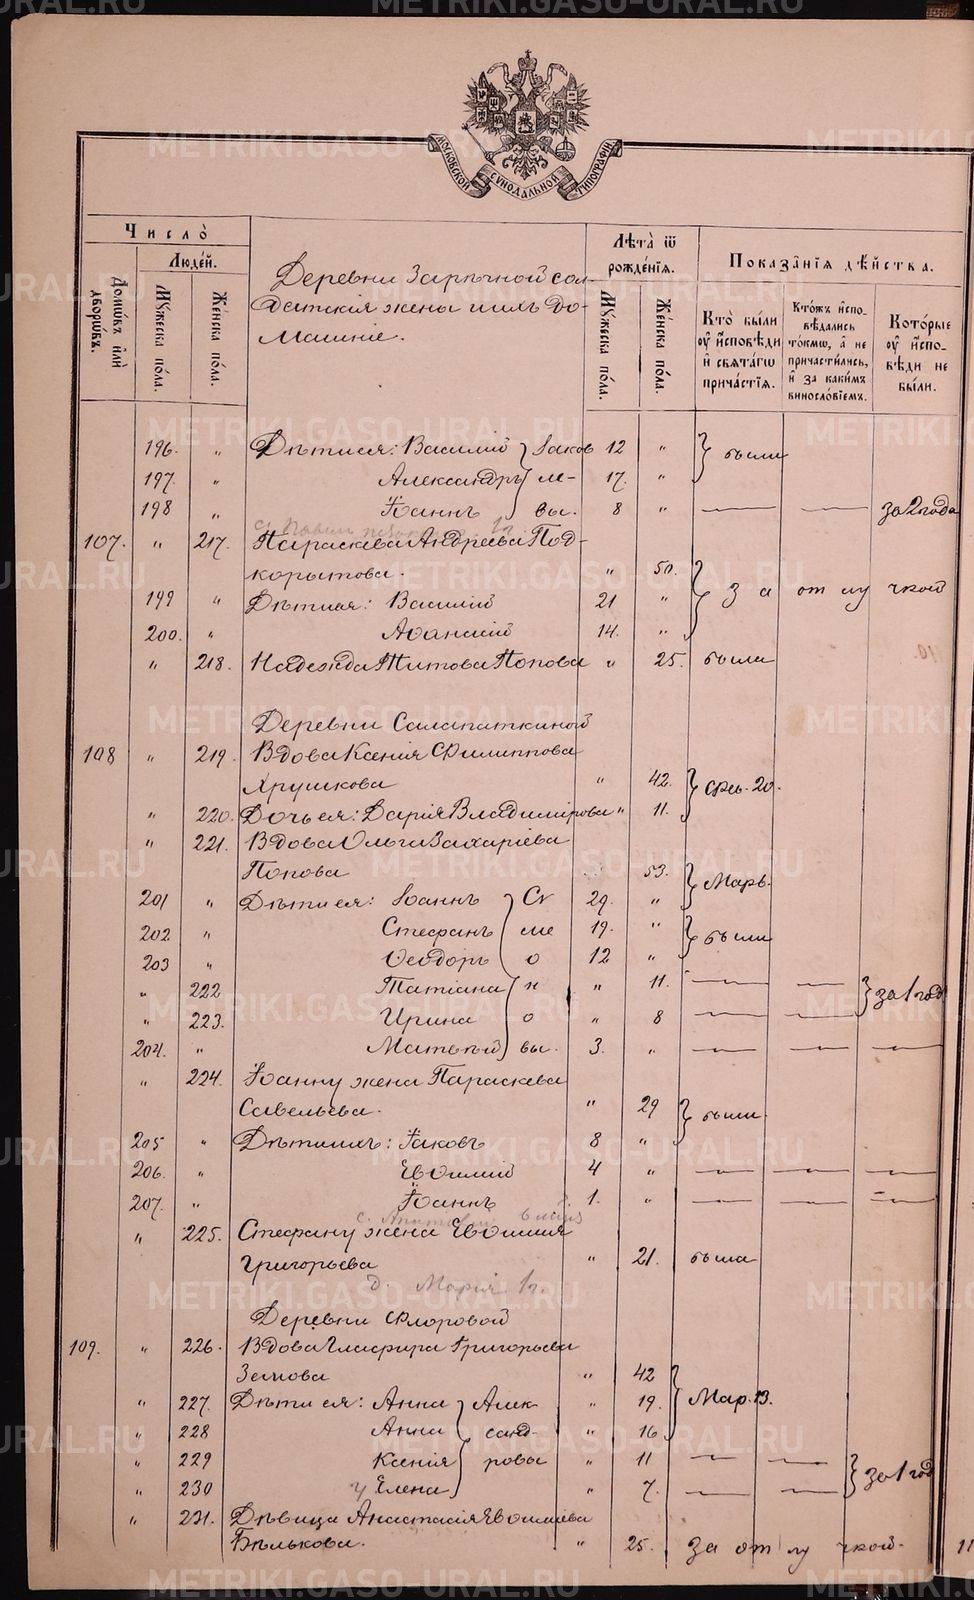 METRIKI.GASO-URAL.RU
МОСКОВСКОЙ СѴНОДАЛЬНОЙ ТИПОГРАФІИ
Число̀
Людей.
Домѡвъ или дворѡвъ.
Мꙋжеска по́ла.
Же́нска по́ла.
Деревни Заречной сол-
датскія жены и ихъ до-
машніе.
Лѣта̀ ѿ рожде́нїѧ.
Мꙋжеска по́ла.
Же́нска по́ла.
Показа̑нїѧ дѣ́йства.
Кто̀ бы́ли ᲂу҆ и҆сповѣди и҆ свѧта́гѡ прича́стїѧ.
Кто́жъ и҆спо-вѣдались то́кмѡ, а҆ не причасти́лись, и҆ за каки́мъ винослѡ́вїемъ.
Кото́рые ᲂу҆ и҆спо-вѣди не бы́ли.
196. " Дѣти ея: Василій Іаков 12 " были
197. " Александръ ле- 17. "
198 " Іоаннъ вы. 8 " — — за 2 года
107. " 217. Параскева Андреева Под-
корытова. " 50. за отлучкой
199 " Дѣти ея: Василій 21 "
200. " Аѳанасій 14. "
" 218. Надежда Титова Попова " 25. была
Деревни Салапаткиной
108 " 219. Вдова Ксенія Филиппова
Хрушкова " 42. Фев. 20.
" 220. Дочь ея: Дарія Владимірова " 11.
" 221. Вдова Ольга Захаріева
Попова 53. Марь.
201 " Дѣти ея: Іоаннъ Си 29. "
202 " Стефанъ ме 19. " были
203 " Ѳеодоръ о 12 "
" 222 Татіана н " 11. — — за 1 год
" 223. Ирина о " 8 — —
204. " Матвѣй вы. 3. " — — —
" 224. Іоанну жена Параскева
Савельева. " 29 были
205 " Дѣти ихъ: Іаковъ 8 "
206. " Евѳимій 4 " — — —
207. " Іоаннъ 1. " — — —
" 225. Стефану жена Евѳимія
Григорьева " 21. была
д. Марія 1 г.
Деревни Флоровой
109. " 226. Вдова Глафира Григорьева
Земова " 42 Мар. 13.
" 227. Дѣти ея: Анна Алек " 19.
" 228 Анна санд- " 16
" 229 Ксенія рова " 11 — — за 1 год
" 230 Елена " 7. — —
" 231. Дѣвица Анастасія Евѳиміева
Бѣлькова. " 25. за отлучкой.